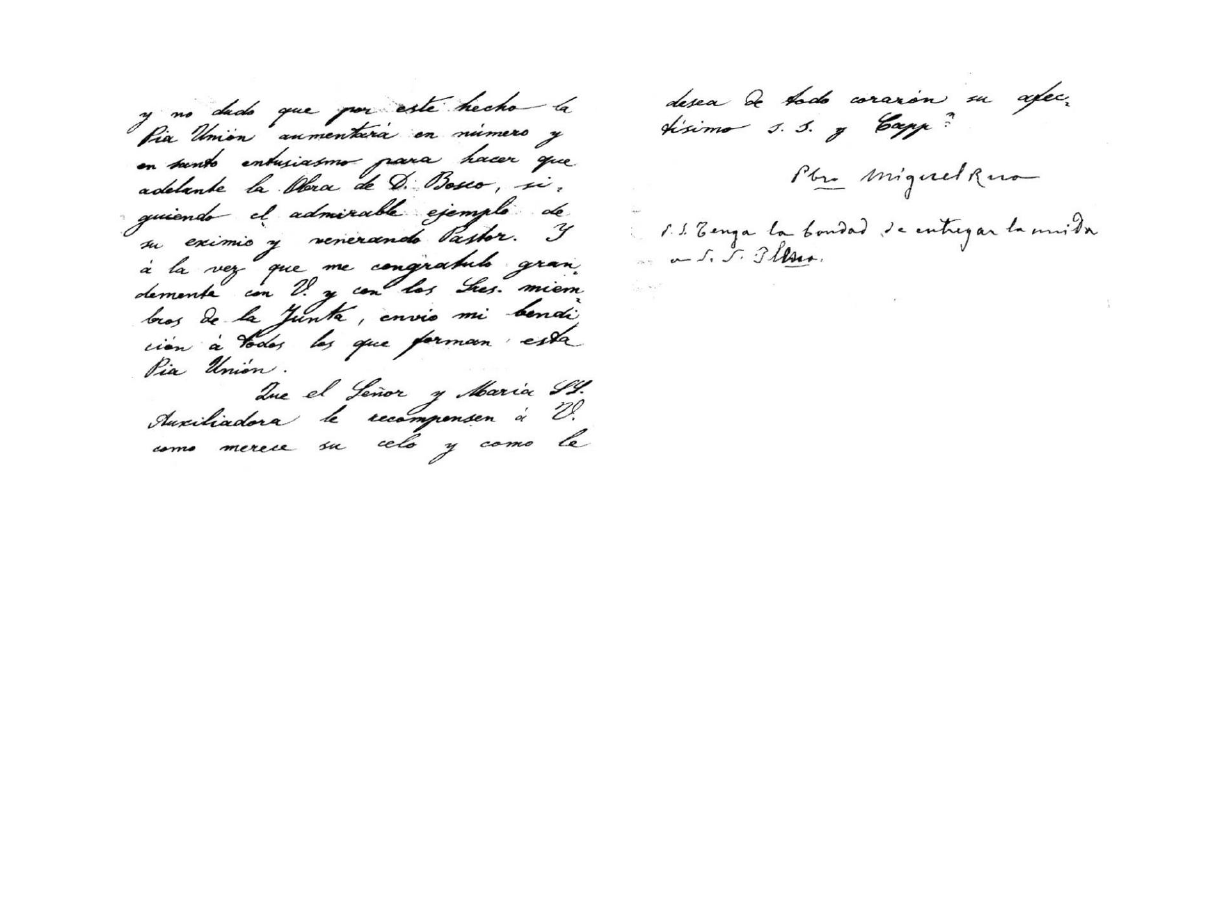 y no dudo que por este hecho la
Pia Unión aumentará en número y
en santo entusiasmo para hacer que
adelante la Obra de D. Bosco, si-
guiendo el admirable ejemplo de
su eximio y venerando Pastor. Y
á la vez que me congratulo gran-
demente con V. y con los Sres. miem-
bros de la Junta, envio mi bendi-
ción á todos los que forman esta
Pia Unión.
Que el Señor y Maria SS.
Auxiliadora le recompensen á V.
como merece su celo y como le
desea de todo corazón su afec-
tísimo s. s. y Capp.
Pbro Miguel Rua
Tenga la bondad de entregar la unida
a S. S. Illma.